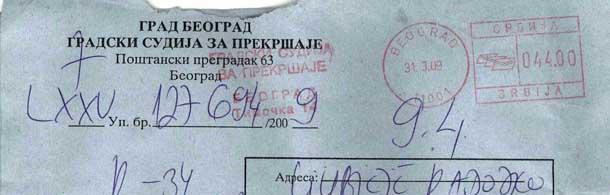 ГРАД БЕОГРАД
ГРАДСКИ СУДИЈА ЗА ПРЕКРШАЈЕ
Поштански преградак 63
Београд
ГРАДСКИ СУДИЈА
ЗА ПРЕКРШАЈЕ
БЕОГРАД
Тимочка
BEOGRAD
31.3.09
11001
СРБИЈА
044.00
SRBIJA
LXXV Уп. бр. 127694 /200 9
9.4.
R-34
Адреса: